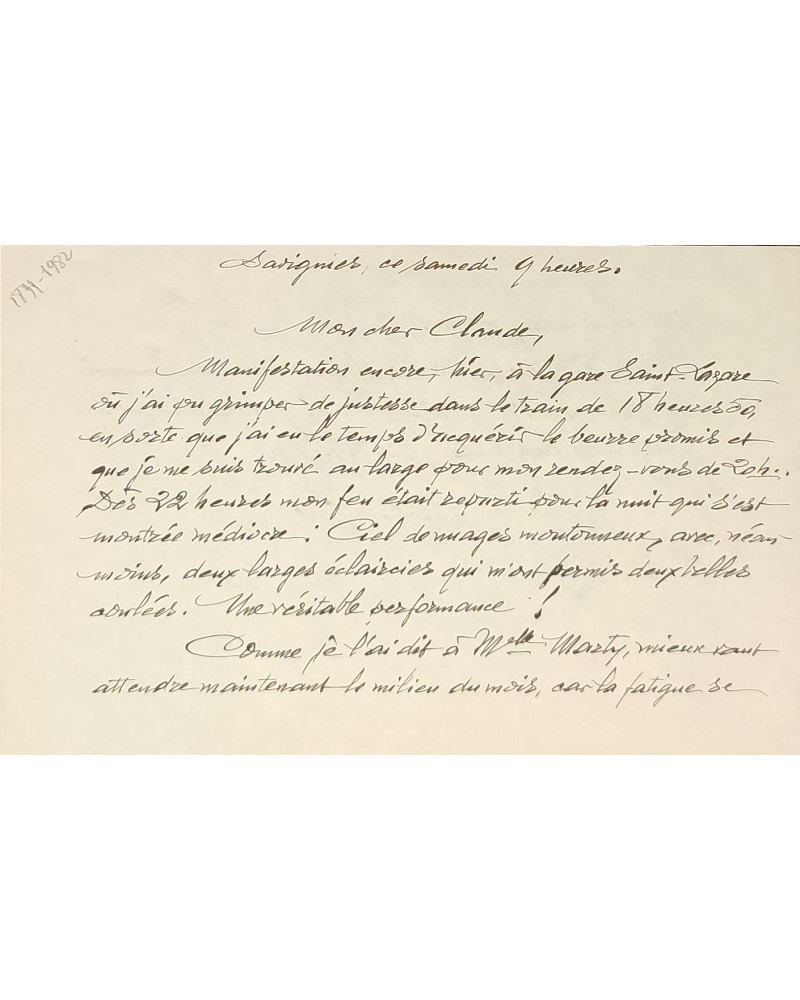 1899-1982
Savignies, ce samedi 9 heures.
Mon cher Claude,
Manifestation encore, hier, à la gare Saint-Lazare
où j'ai pu grimper de justesse dans le train de 18 heures 50,
en sorte que j'ai eu le temps d'acquérir le beurre promis et
que je me suis trouvé au large pour mon rendez-vous de 20h.
Dès 22 heures mon feu était reparti pour la nuit qui s'est
montrée médiocre : Ciel de nuages moutonneux, avec, néan-
moins, deux larges éclaircies qui m'ont permis deux belles
coulées. Une véritable performance !
Comme je l'ai dit à Melle Marty, mieux vaut
attendre maintenant le milieu du mois, car la fatigue se